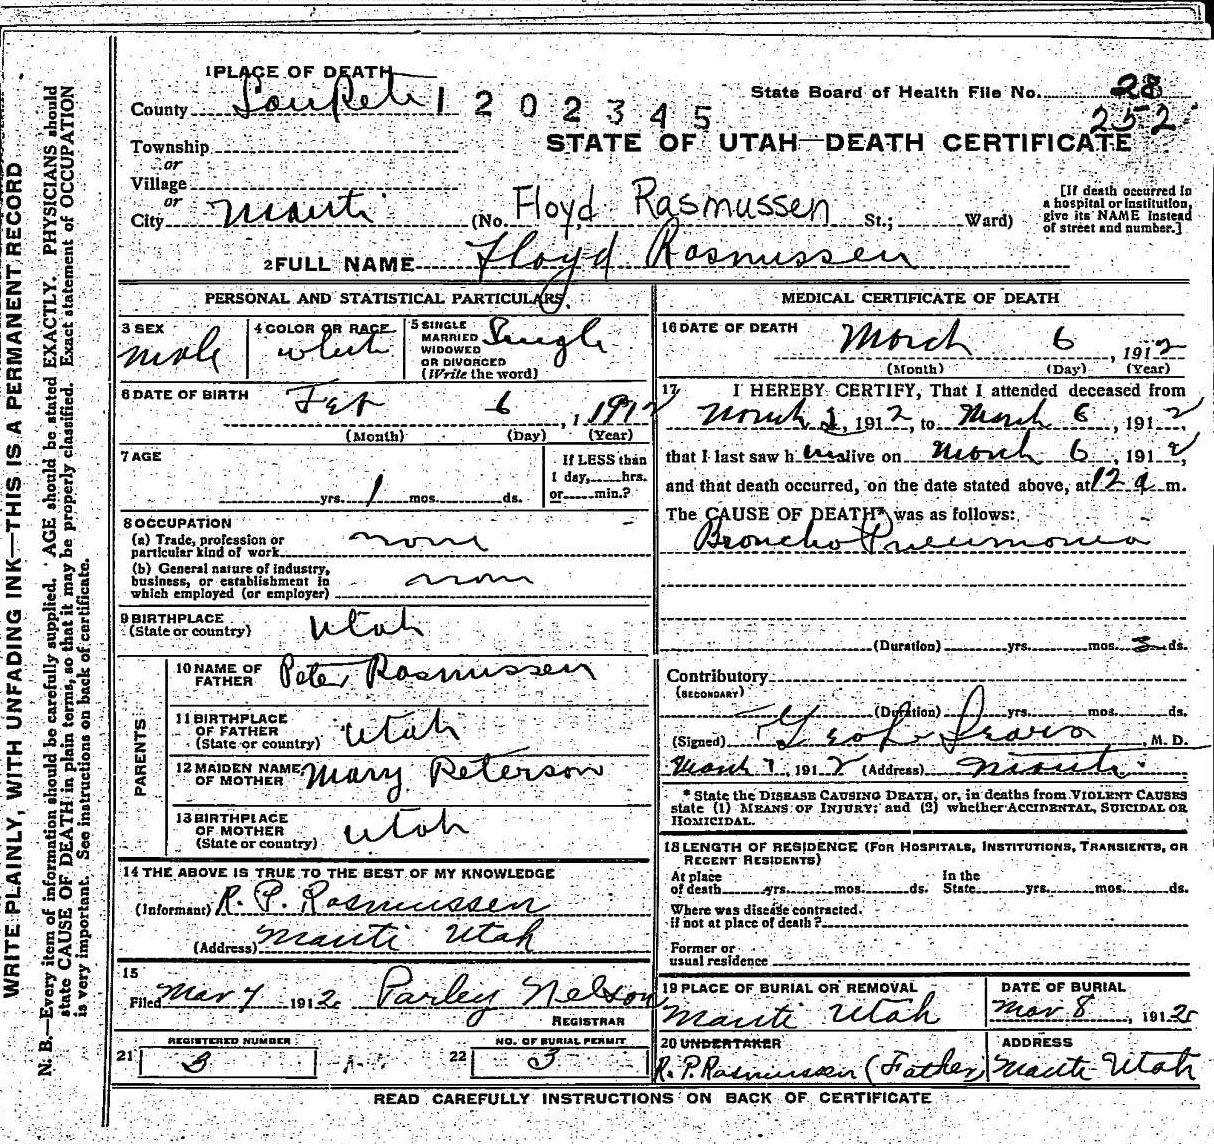 1 PLACE OF DEATH
County SanPete 1 2 0 2 3 4 5
State Board of Health File No. 28
252
Township
or
Village
or
City Manti
STATE OF UTAH—DEATH CERTIFICATE
(No. Floyd Rasmussen St.; Ward)
[If death occurred in
a hospital or institution,
give its NAME instead
of street and number.]
2 FULL NAME Floyd Rasmussen
PERSONAL AND STATISTICAL PARTICULARS
3 SEX
male
4 COLOR OR RACE
white
5 SINGLE
MARRIED
WIDOWED
OR DIVORCED
(Write the word)
Single
6 DATE OF BIRTH
Feb 6, 1912
(Month) (Day) (Year)
7 AGE
yrs. 1 mos. ds.
If LESS than
1 day, hrs.
or min.?
8 OCCUPATION
(a) Trade, profession or
particular kind of work none
(b) General nature of industry,
business, or establishment in
which employed (or employer) none
9 BIRTHPLACE
(State or country) Utah
PARENTS
10 NAME OF
FATHER Peter Rasmussen
11 BIRTHPLACE
OF FATHER
(State or country) Utah
12 MAIDEN NAME
OF MOTHER Mary Peterson
13 BIRTHPLACE
OF MOTHER
(State or country) Utah
14 THE ABOVE IS TRUE TO THE BEST OF MY KNOWLEDGE
(Informant) R. P. Rasmussen
(Address) Manti Utah
15
Filed Mar 7 1912 Parley Nelson
REGISTRAR
REGISTERED NUMBER
21 3
NO. OF BURIAL PERMIT
22 3
MEDICAL CERTIFICATE OF DEATH
16 DATE OF DEATH
March 6, 1912
(Month) (Day) (Year)
17 I HEREBY CERTIFY, That I attended deceased from
March 1, 1912, to March 6, 1912,
that I last saw him alive on March 6, 1912,
and that death occurred, on the date stated above, at 12 a m.
The CAUSE OF DEATH* was as follows:
Broncho Pneumonia
(Duration) yrs. mos. 3 ds.
Contributory
(SECONDARY)
(Duration) yrs. mos. ds.
(Signed) Geo L Sears, M. D.
March 7, 1912 (Address) Manti
* State the DISEASE CAUSING DEATH, or, in deaths from VIOLENT CAUSES
state (1) MEANS OF INJURY; and (2) whether ACCIDENTAL, SUICIDAL OR
HOMICIDAL.
18 LENGTH OF RESIDENCE (FOR HOSPITALS, INSTITUTIONS, TRANSIENTS, OR
RECENT RESIDENTS)
At place
of death yrs. mos. ds.
In the
State yrs. mos. ds.
Where was disease contracted.
if not at place of death?
Former or
usual residence
19 PLACE OF BURIAL OR REMOVAL
Manti Utah
DATE OF BURIAL
Mar 8, 1912
20 UNDERTAKER
R. P. Rasmussen (Father)
ADDRESS
Manti Utah
READ CAREFULLY INSTRUCTIONS ON BACK OF CERTIFICATE
WRITE PLAINLY, WITH UNFADING INK—THIS IS A PERMANENT RECORD
N. B.—Every item of information should be carefully supplied. AGE should be stated EXACTLY. PHYSICIANS should
state CAUSE OF DEATH in plain terms, so that it may be properly classified. Exact statement of OCCUPATION
is very important. See instructions on back of certificate.